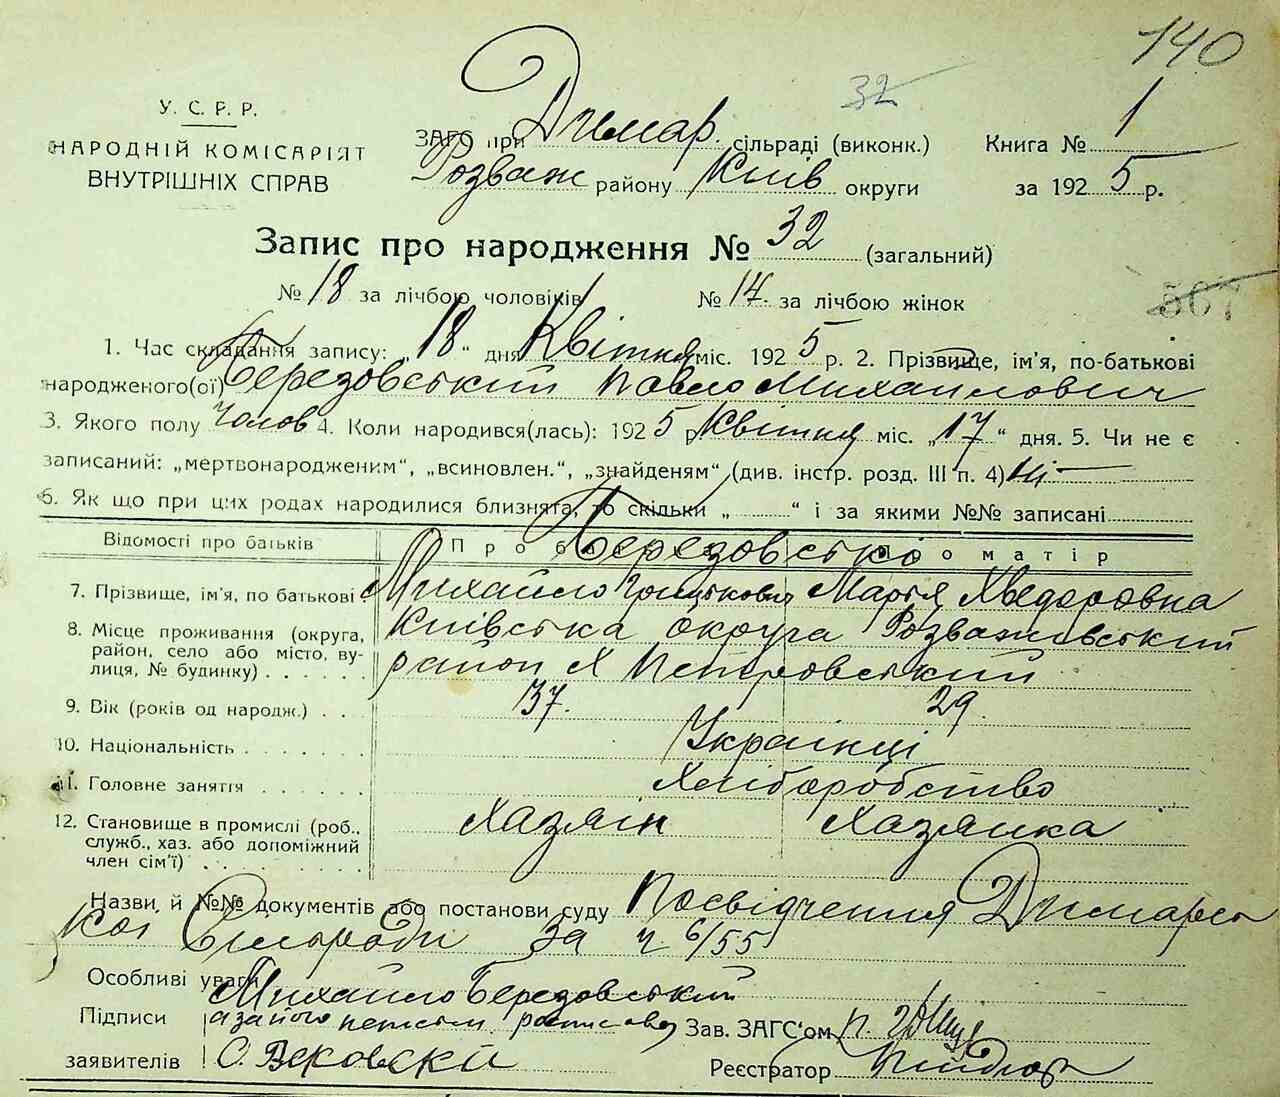 140
32
У. С. Р. Р.
НАРОДНІЙ КОМІСАРІЯТ
ВНУТРІШНІХ СПРАВ
ЗАГС при Димар. сільраді (виконк.) Книга № 1
Розваж району Київ округи за 1925 р.
Запис про народження № 32 (загальний)
№ 18 за лічбою чоловіків № 14 за лічбою жінок
567
1. Час складання запису: „18“ дня Квітня міс. 1925 р. 2. Прізвище, ім'я, по-батькові
народженого(ої) Березовський Павло Михайлович
3. Якого полу чолов 4. Коли народився(лась): 1925 р Квітня міс. „17“ дня. 5. Чи не є
записаний: „мертвонародженим“, „всиновлен.“, „знайденям“ (див. інстр. розд. III п. 4) Ні
6. Як що при цих родах народилися близнята, то скільки „ “ і за якими №№ записані
Відомості про батьків Про батька Про матір
Березовські
7. Прізвище, ім'я, по батькові Михайло Грицькович Марья Хведоровна
8. Місце проживання (округа, район, село або місто, вулиця, № будинку) Київська округа Розважівський
район Х Петровський
9. Вік (років од народж.) 37. 29.
10. Національність Українці
11. Головне заняття Хліборобство
12. Становище в промислі (роб., Хазяїн Хазяйка
служб., хаз. або допоміжний
член сім'ї)
Назви й №№ документів або постанови суду Посвідчення Димарсь
кої Сільради за ч 6/55
Особливі уваги Михайло Березовський
Підписи а за його неписьм росписов Зав. ЗАГС'ом
заявителів Реєстратор